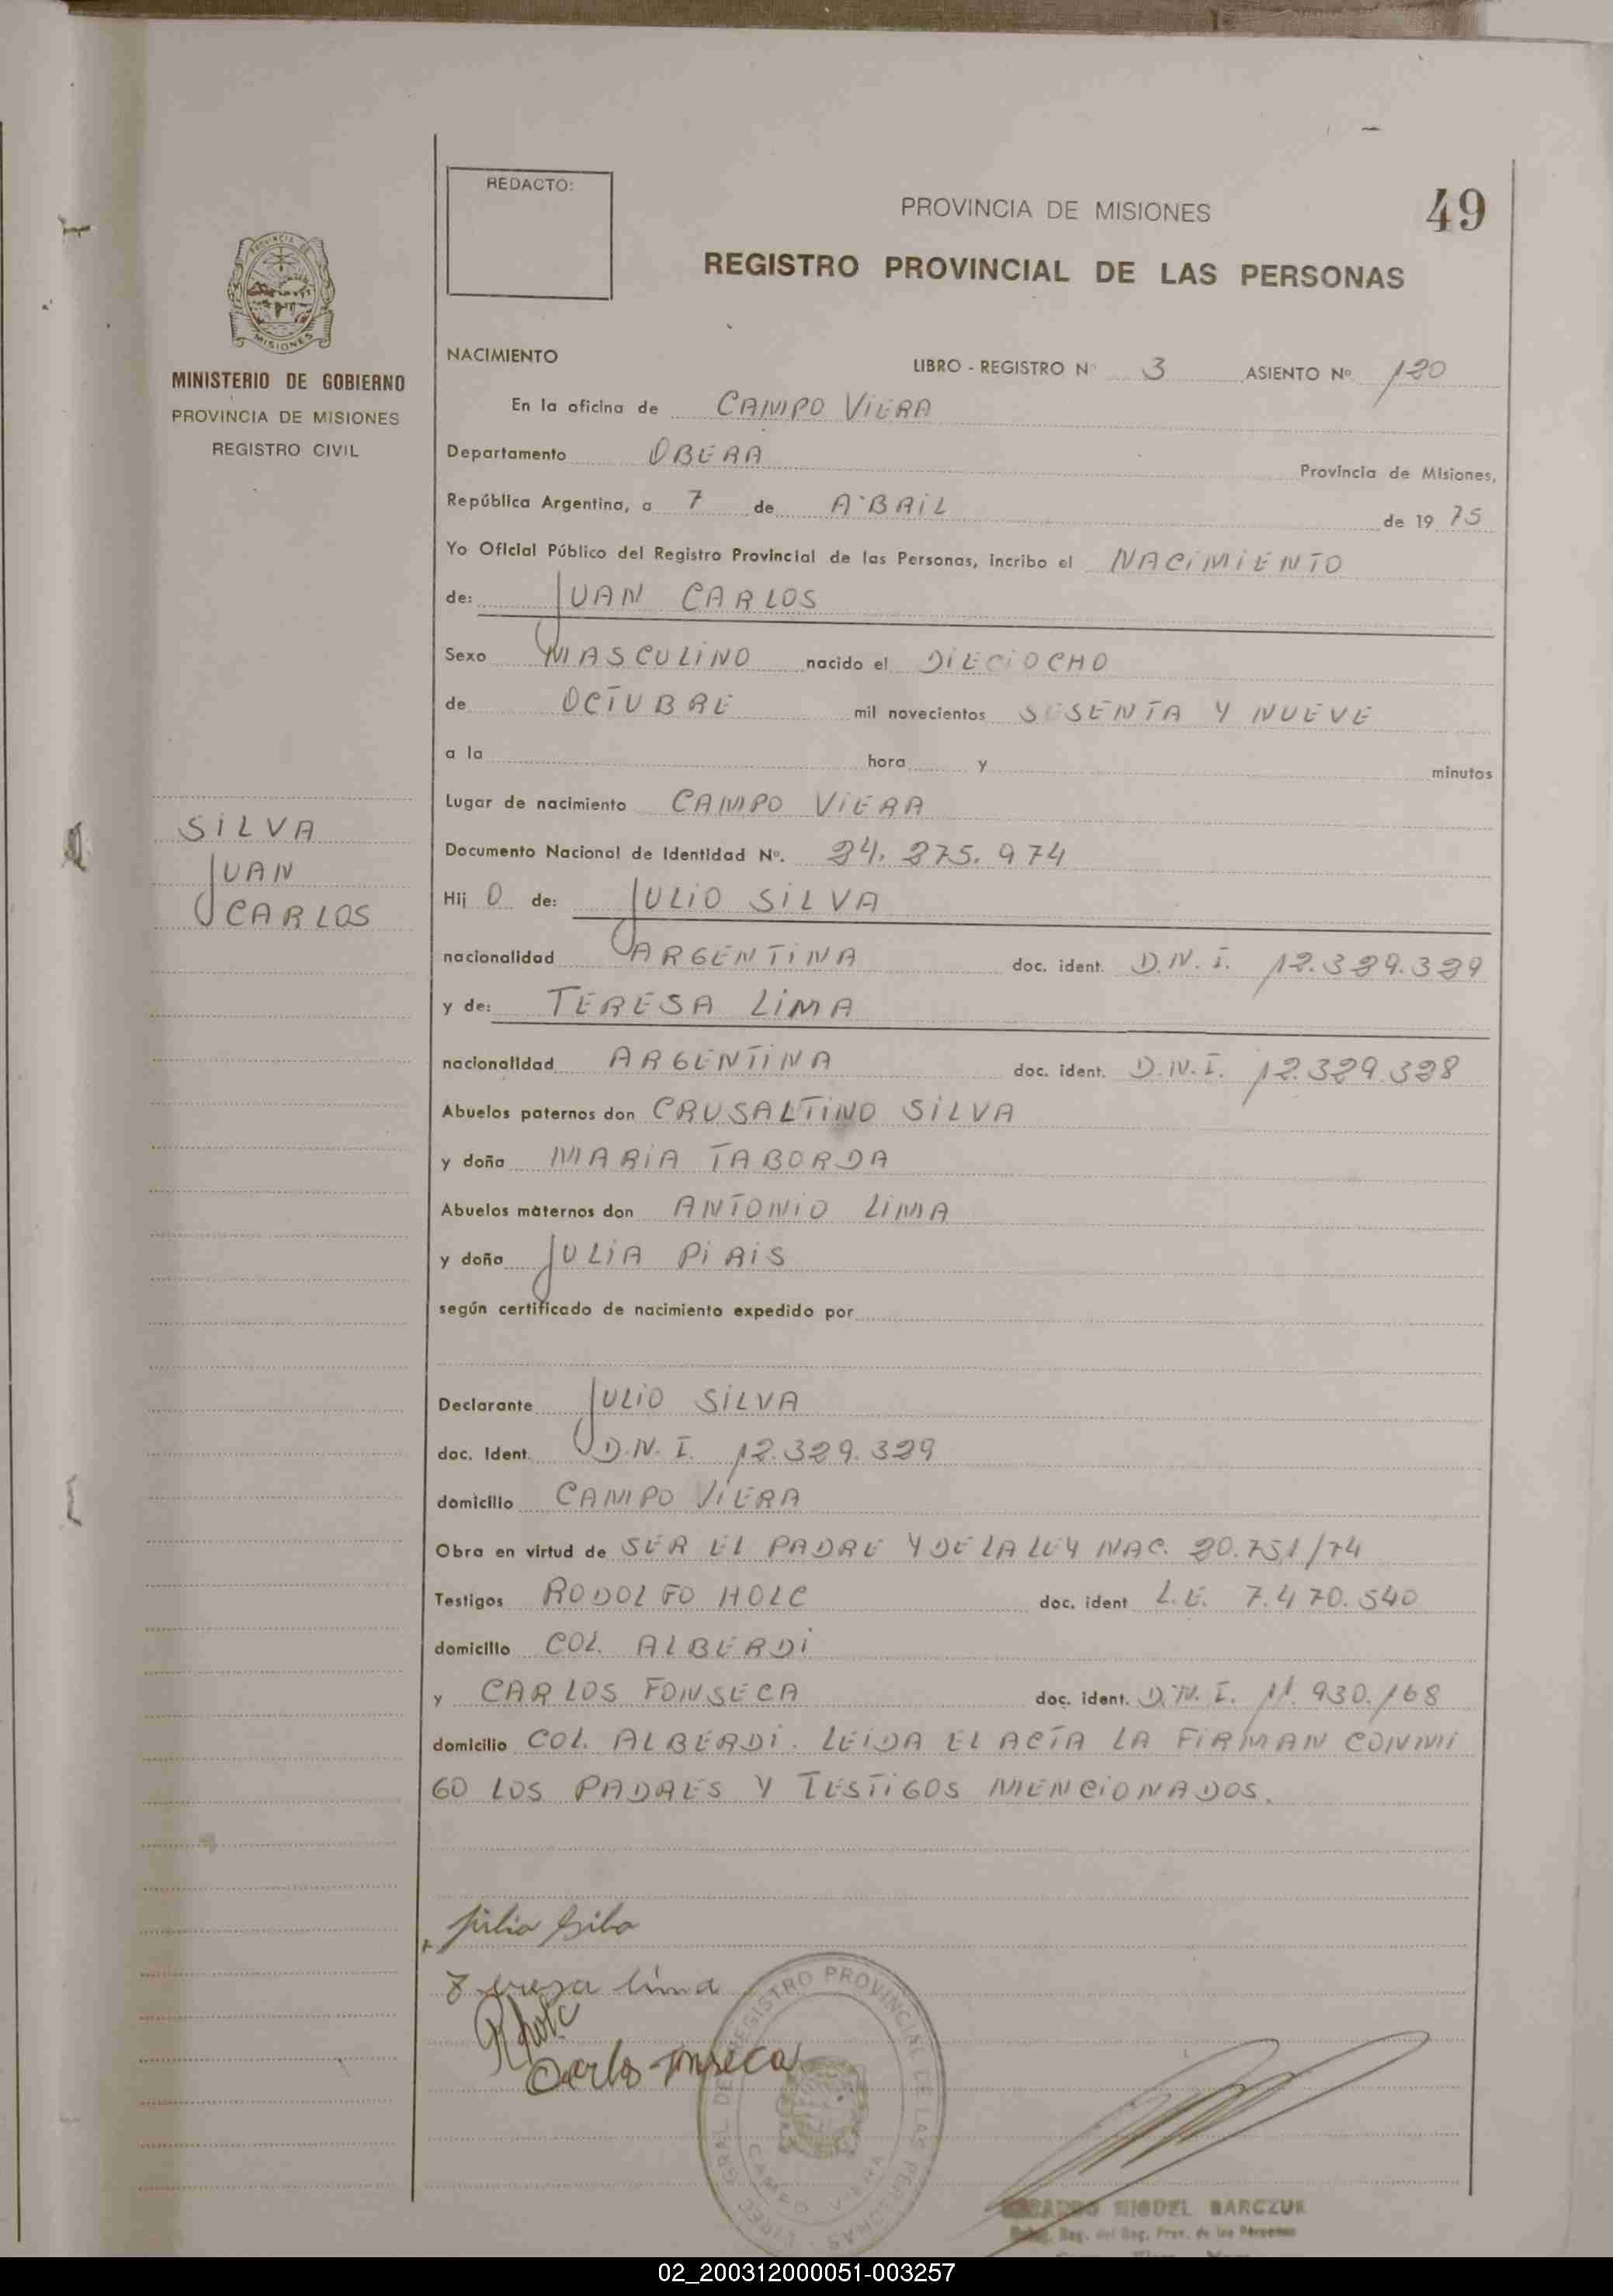 49
REDACTO:
PROVINCIA DE MISIONES
REGISTRO PROVINCIAL DE LAS PERSONAS
PROVINCIA DE
MISIONES
MINISTERIO DE GOBIERNO
PROVINCIA DE MISIONES
REGISTRO CIVIL
SILVA
JUAN
CARLOS
NACIMIENTO LIBRO - REGISTRO Nº 3 ASIENTO Nº 120
En la oficina de CAMPO VIERA
Departamento OBERA Provincia de Misiones,
República Argentina, a 7 de ABRIL de 1975
Yo Oficial Público del Registro Provincial de las Personas, incribo el NACIMIENTO
de: JUAN CARLOS
Sexo MASCULINO nacido el DIECIOCHO
de OCTUBRE mil novecientos SESENTA Y NUEVE
a la hora y minutos
Lugar de nacimiento CAMPO VIERA
Documento Nacional de Identidad Nº. 24.275.974
Hij O de: JULIO SILVA
nacionalidad ARGENTINA doc. ident. D.N.I. 12.329.329
y de: TERESA LIMA
nacionalidad ARGENTINA doc. ident. D.N.I. 12.329.328
Abuelos paternos don CRUSALTINO SILVA
y doña MARIA TABORDA
Abuelos maternos don ANTONIO LIMA
y doña JULIA PIRIS
según certificado de nacimiento expedido por
Declarante JULIO SILVA
doc. Ident. D.N.I. 12.329.329
domicilio CAMPO VIERA
Obra en virtud de SER EL PADRE Y DE LA LEY NAC. 20.751/74
Testigos RODOLFO HOLC doc. ident L.E. 7.470.540
domicilio COL. ALBERDI
y CARLOS FONSECA doc. ident. D.N.I. 11.930.168
domicilio COL. ALBERDI. LEIDA EL ACTA LA FIRMAN CONMI
GO LOS PADRES Y TESTIGOS MENCIONADOS.
Julio Silva
Teresa lima
RHolc
Carlos Fonseca
REGISTRO PROVINCIAL DE LAS PERSONAS
CAMPO VIERA
MIGUEL BARCZUK
Reg. del Reg. Prov. de las Personas
02_200312000051-003257